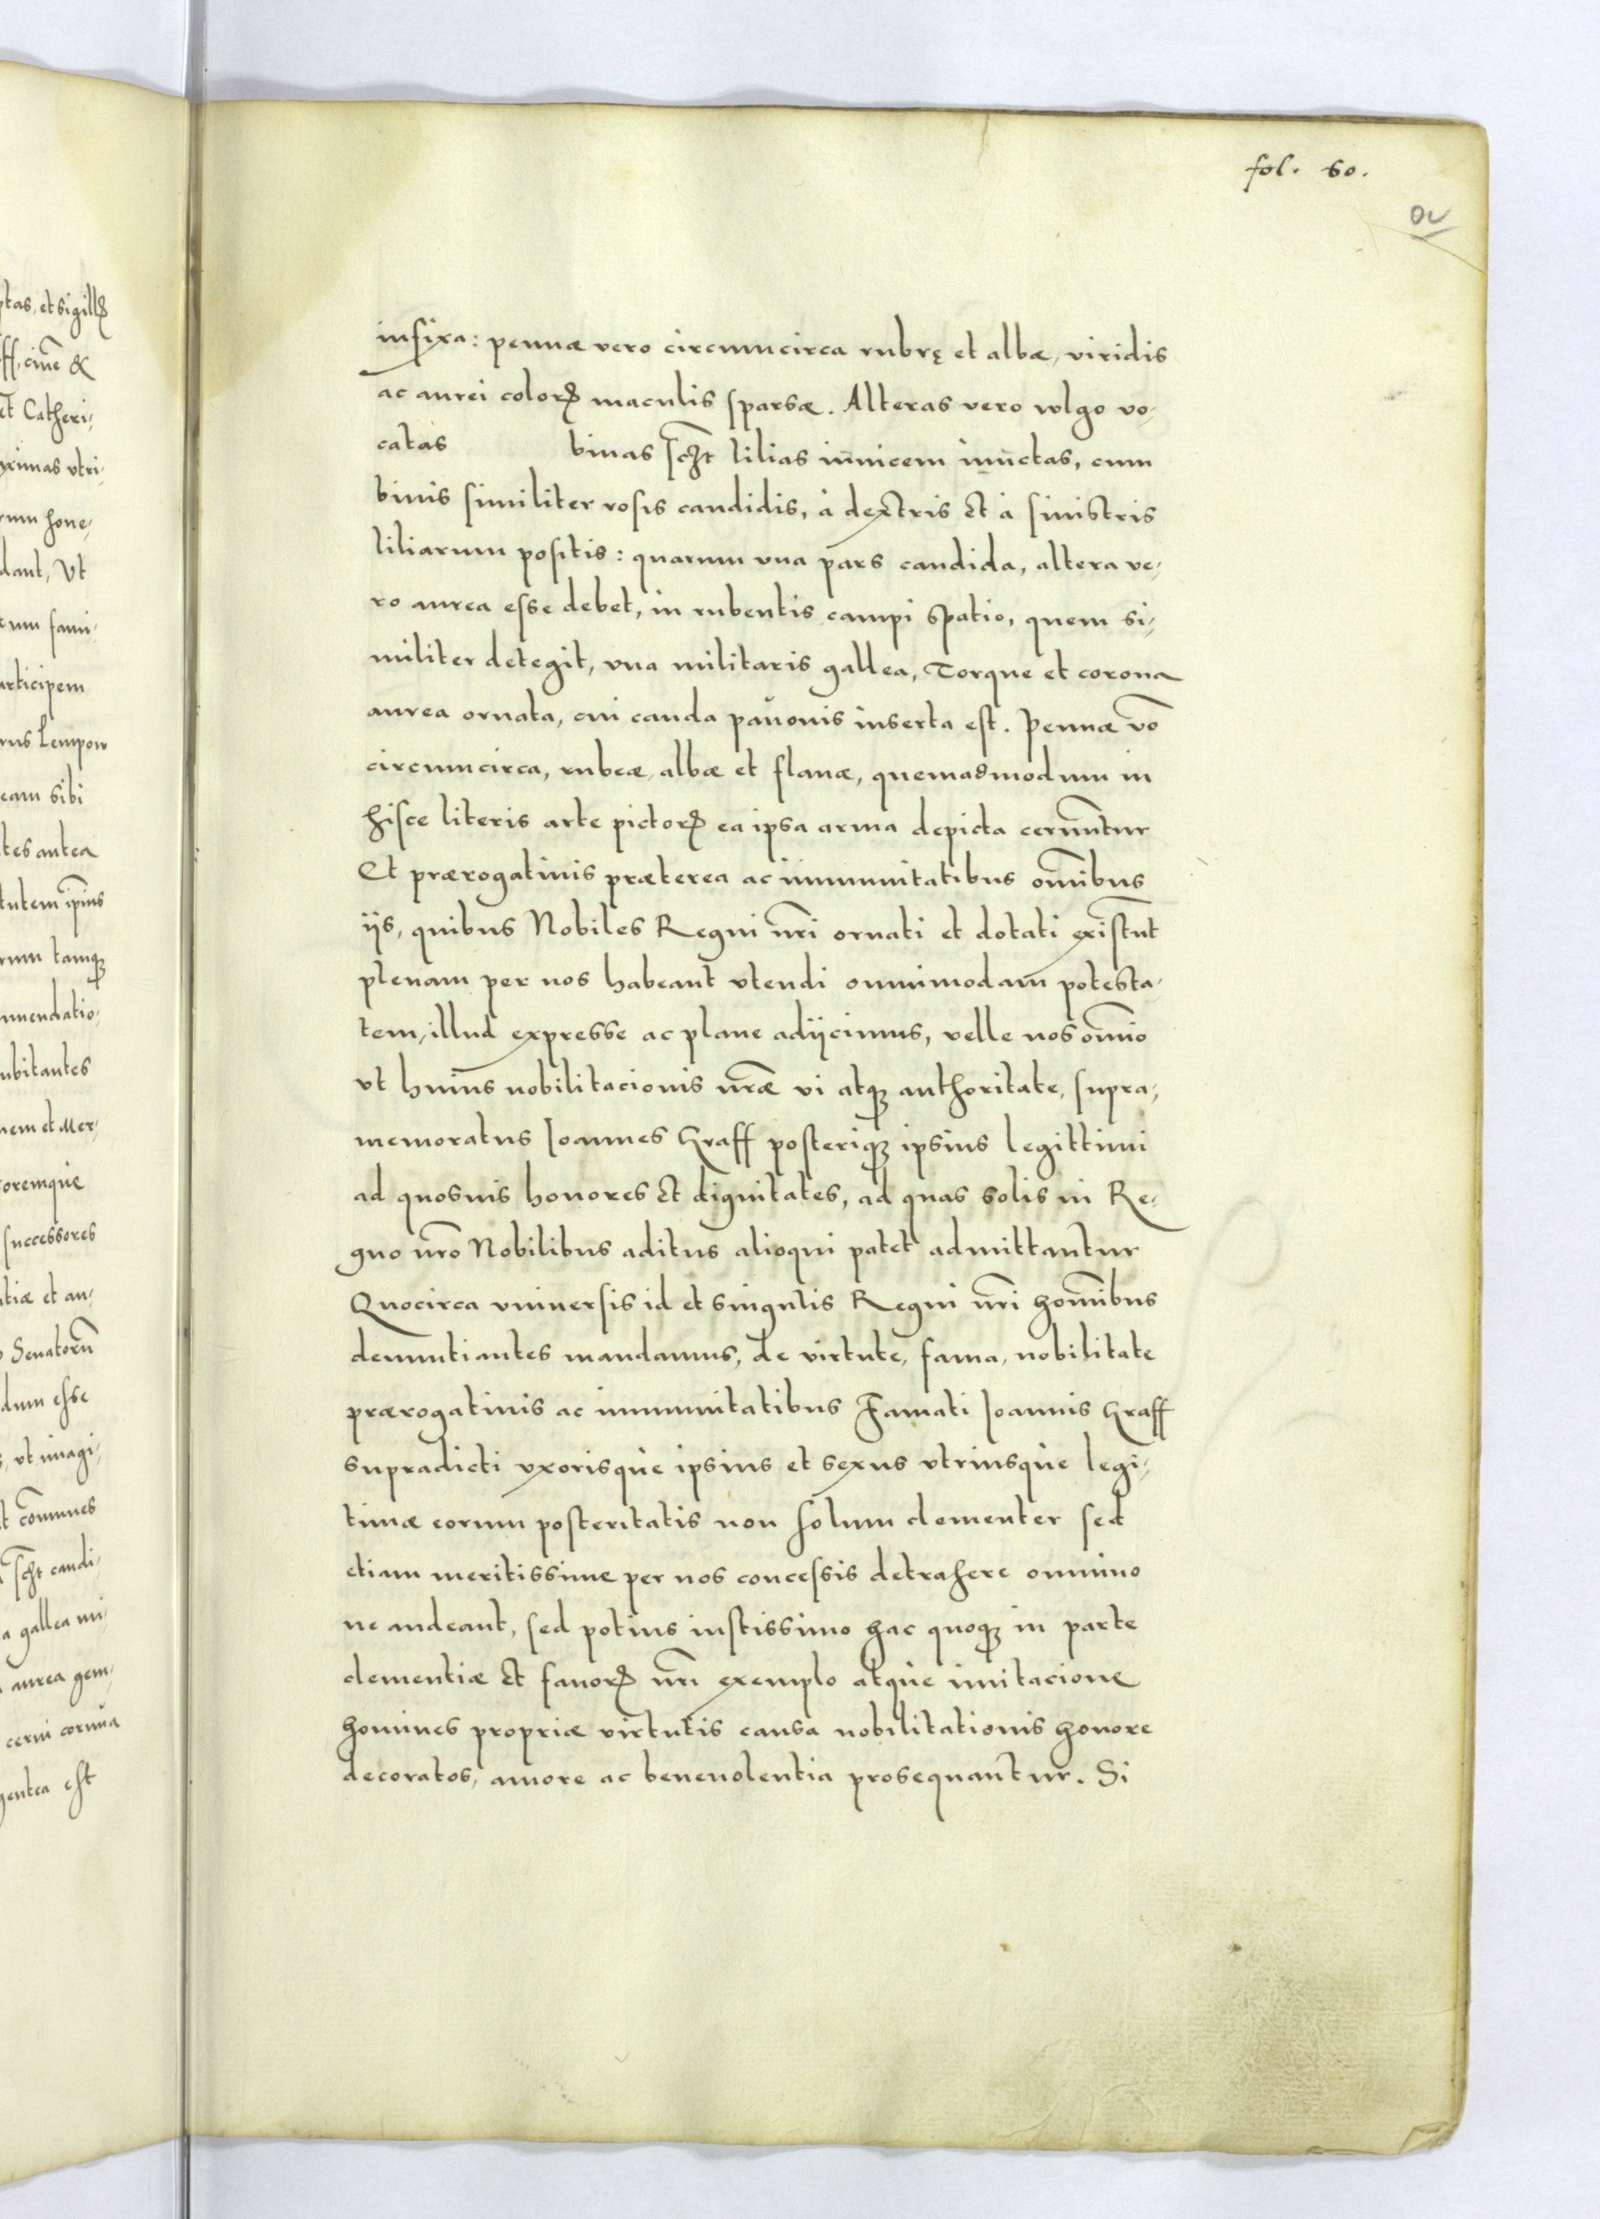 fol. 60.
infixa: pennæ vero circumcirca rubrę et albæ, viridis
ac aurei colorꝭ maculis sparsæ. Alteras vero wlgo vo-
catas binas scȝt lilias inuicem iunctas, cum
binis similiter rosis candidis, à dextris et à sinistris
liliarum positis: quarum vna pars candida, altera ve-
ro aurea esse debet, in rubentis campi spatio, quem si-
militer detegit, vna militaris gallea, Torque et corona
aurea ornata, cui cauda pauonis inserta est. Pennæ vo̅
circumcirca, rubeæ, albæ et flauæ, quemadmodum in
hisce literis arte pictorꝭ ea ipsa arma depicta cernuntur
Et prærogatiuis præterea ac immunitatibus om̅ibus
ijs, quibus Nobiles Regni nr̅i ornati et dotati existunt
plenam per nos habeant vtendi omnimodam potesta-
tem, illud expresse ac plane adijcimus, velle nos om̅io
vt huius nobilitacionis nr̅æ vi atqȝ authoritate, supra-
memoratus Joannes Graff posteriqȝ ipsius legittimi
ad quosuis honores et dignitates, ad quas solis in Re-
gno nr̅o Nobilibus aditus alioqui patet admittantur
Quocirca vniuersis id et singulis Regni nr̅i hom̅ibus
denuntiantes mandamus, de virtute, fama, nobilitate
prærogatiuis ac immunitatibus Famati Joannis Graff
supradicti vxorisque ipsius et sexus vtriusque legi-
timæ eorum posteritatis non solum clementer sed
etiam meritissime per nos concessis detrahere omnino
ne audeant, sed potius iustissimo hac quoqȝ in parte
clementiæ et fauorꝭ nr̅i exemplo atque imitacione
homines propriæ virtutis causa nobilitationis honore
decoratos, amore ac beneuolentia prosequantur. Si